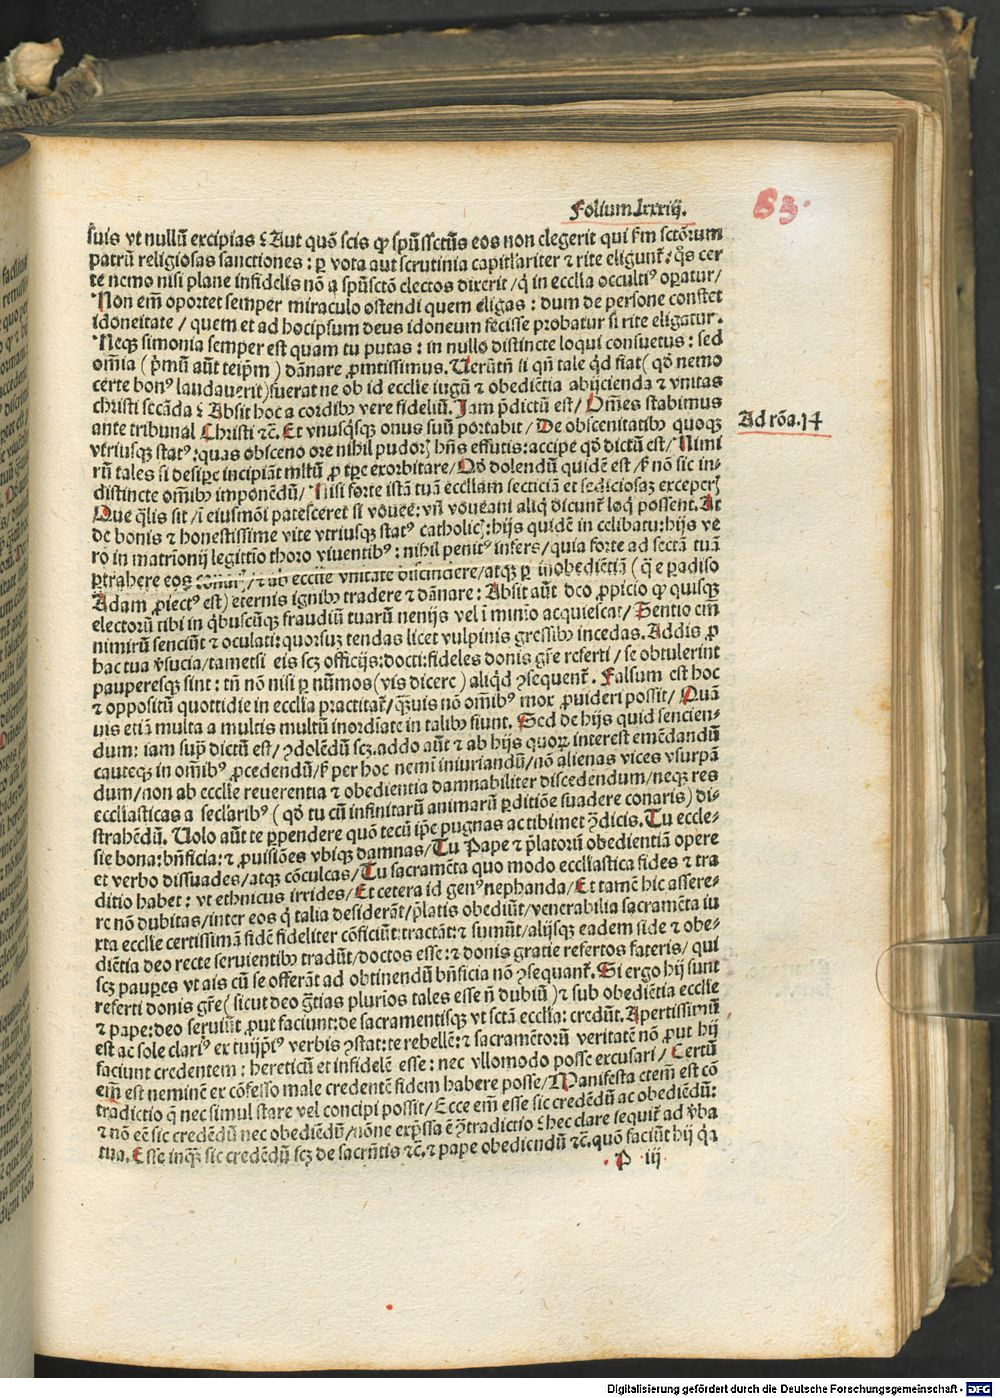 Folium lxxxiij.
83.
suis vt nullũ excipias ⁊ Aut quõ scis qp spũssctũs eos non elegerit qui fm sctõrum
patrũ religiosas sanctiones : ꝑ vota aut scrutinia capitlariter ⁊ rite eligunt̃ : q̃s cer
te nemo nisi plane infidelis nõ a spũsctõ electos dixerit / q̇ in ecclia occultiꝰ oꝑatur /
Non em̃ oportet semper miraculo ostendi quem eligas : dum de persone constet
idoneitate / quem et ad hocipsum deus idoneum fecisse probatur si rite eligatur.
Neqꝫ simonia semper est quam tu putas : in nullo distincte loqui consuetus : sed
om̃ia ( p̃mũ aũt teip̃m ) dãnare ꝓmtissimus. Uerũtñ si qñ tale q̇d fiat ( qõ nemo
certe bonꝰ laudauerit) fuerat ne ob id ecclie iugũ ⁊ obediẽtia abijcienda ⁊ vnitas
christi secãda ⁊ Absit hoc a cordibꝫ vere fideliũ. Jam p̃dictũ est / Om̃es stabimus
ante tribunal Christi ⁊c̃. Et vnusq̇sqꝫ onus suũ portabit / De obscenitatibꝫ quoqꝫ
vtriusqꝫ statꝰ : quas obsceno ore nihil pudorꝭ hñs effutis : accipe qõ dictũ est / Nimi
rũ tales si desipe incipiãt mltũ ꝓ tꝑe exorbitare / Qõ dolendũ quidẽ est / ẜ nõ sic in-
distincte om̃ibꝫ imponẽdũ / Nisi forte istã tuã eccliam secticiã et sediciosaꝫ exceperꝭ
Que q̃lis sit / ĩ eiusmõi patesceret si vouẽt : vñ voueãni aliq̇ dicunt̃ loq̇ possent. At
de bonis ⁊ honestissime vite vtriusqꝫ statꝰ catholicꝭ : hijs quidẽ in celibatu : hijs ve
ro in matrĩonij legittĩo thoro viuentibꝰ : nihil penitꝰ infers / quia forte ad sectã tuã
ꝑtrahere eos / ⁊ ab ecclie vnitate discindere / atqꝫ ꝑ inobediẽtiã ( q̃ e paradiso
Adam ꝓiectꝰ est) eternis ignibꝫ tradere ⁊ dãnare : Absit aũt deo ꝓpicio qp quisqꝫ
electorũ tibi in q̇buscũqꝫ fraudiũ tuarũ nenijs vel ĩ minĩo acquiescat / Sentio em̃
nimirũ senciũt ⁊ oculati : quorsuꝫ tendas licet vulpinis gressibꝫ incedas. Addis ꝓ
hac tua vsucia / tametsi eis scꝫ officijs : docti : fideles donis gr̃e referti / se obtulerint
pauperesqꝫ sint : tñ nõ nisi ꝑ nũmos (vis dicere) aliq̇d ꝯsequent̃. Falsum est hoc
⁊ oppositũ quottidie in ecclia practitat̃ / q̃uis nõ om̃ibꝰ mox ꝓuideri possit / Quã
uis etiã multa a multis multũ inordĩate in talibꝫ fiunt. Sed de hijs quid sencien-
dum : iam sup̃ dictũ est / ꝯdolẽdũ scꝫ. addo aũt ⁊ ab hijs quoꝝ interest emẽdandũ
cauteqꝫ in om̃ibꝰ ꝓcedendũ / ẜ per hoc nemĩ iniuriandũ / nõ alienas vices vsurpã
dum / non ab ecclie reuerentia ⁊ obedientia damnabiliter discedendum / neqꝫ res
eccliasticas a sec̃laribꝰ ( qõ tu cũ infinitarũ animarũ ꝑditiõe suadere conaris ) di-
strahẽdũ. Uolo aũt te ꝑpendere quõ tecũ ip̃e pugnas ac tibimet ꝯdicis. Tu eccle-
sie bona : bñficia : ⁊ ꝓuisiões vbiqꝫ damnas / Tu Pape ⁊ p̃latorũ obedientiã opere
et verbo dissuades / atqꝫ cõculcas / Tu sacramẽta quo modo eccliastica fides ⁊ tra
ditio habet : vt ethnicus irrides / Et cetera id genꝰ nephanda / Et tamẽ hic assere-
re nõ dubitas / inter eos q̇ talia desiderãt / p̃latis obediũt / venerabilia sacramẽta iu
xta ecclie certissimã fidẽ fideliter cõficiũt : tractãt : ⁊ sumũt / alijsqꝫ eadem fide ⁊ obe-
diẽtia deo recte seruientibꝫ tradũt / doctos esse : ⁊ donis gratie refertos fateris / qui
scꝫ pauꝑes vt ais cũ se offerãt ad obtinendũ bñficia nõ ꝯsequant̃. Si ergo hij sunt
referti donis gr̃e ( sicut deo g̃tias plurios tales esse ñ dubiũ ) ⁊ sub obediẽtia ecclie
⁊ pape : deo seruiũt ꝓut faciunt : de sacramentisqꝫ vt sctã ecclia : credũt. Apertissimũ
est ac sole clariꝰ ex tuijp̃iꝰ verbis ꝯstat : te rebellẽ : ⁊ sacramẽtorũ veritatẽ nõ ꝓut hij
faciunt credentem : hereticũ et infidelẽ esse : nec vllomodo posse excusari / Certũ
em̃ est neminẽ ex cõfesso male credentẽ fidem habere posse / Manifesta etem̃ est cõ
tradictio q̃ nec simul stare vel concipi possit / Ecce em̃ esse sic credẽdũ ac obediẽdũ :
⁊ nõ eẽ sic credẽdũ nec obediẽdũ / nõne exp̃ssa ẽ ꝯtradictio ⁊ hec clare sequit̃ ad v̓ba
tua. Esse inq̃ꝫ sic credẽdũ scꝫ de sacrñtis ⁊c̃. ⁊ pape obediendũ ⁊c̃. quõ faciũt hij q̇a
P iij
Ad rõa. 14
Digitalisierung gefördert durch die Deutsche Forschungsgemeinschaft - DFG